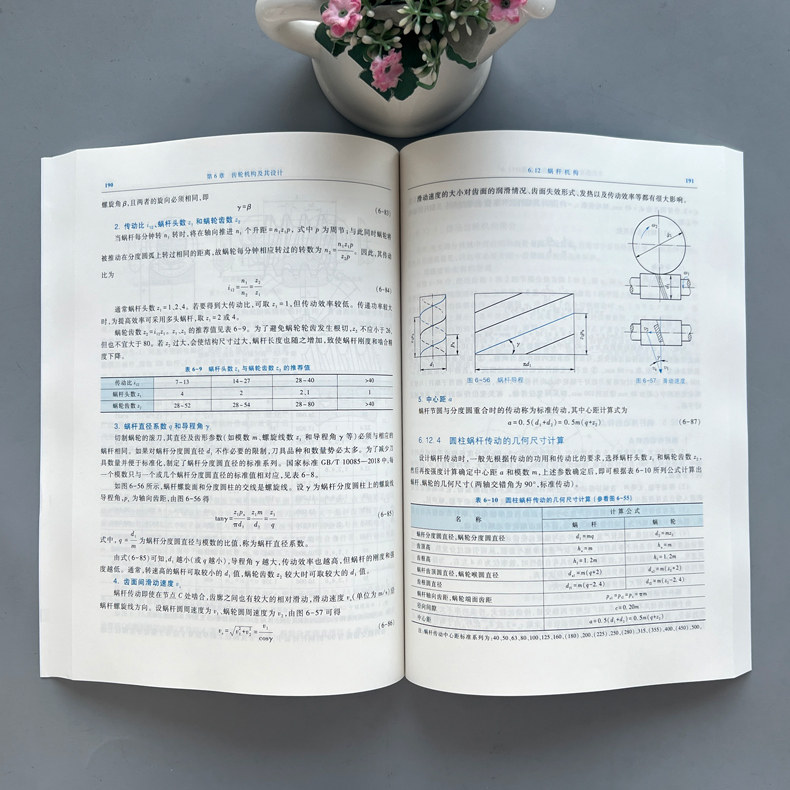 190
第 6 章 齿轮机构及其设计
螺旋角 β,且两者的旋向必须相同,即
γ=β (6-83)
2. 传动比 i₁₂、蜗杆头数 z₁ 和蜗轮齿数 z₂
当蜗杆每分钟转 n₁ 转时,将在轴向推进 n₁ 个升距=n₁z₁p, 式中 p 为周节;与此同时蜗轮将
被推动在分度圆弧上转过相同的距离,故蜗轮每分钟相应转过的转数为 n₂=n₁z₁p/z₂p。因此,其传动
比为
i₁₂=n₁/n₂=z₂/z₁ (6-84)
通常蜗杆头数 z₁=1、2、4。若要得到大传动比,可取 z₁=1,但传动效率较低。传递功率较大
时,为提高效率可采用多头蜗杆,取 z₁=2 或 4。
蜗轮齿数 z₂=i₁₂z₁。z₁、z₂ 的推荐值见表 6-9。为了避免蜗轮轮齿发生根切,z₂ 不应小于 26,
但也不宜大于 80。若 z₂ 过大,会使结构尺寸过大,蜗杆长度也随之增加,致使蜗杆刚度和啮合精
度下降。
表 6-9 蜗杆头数 z₁ 与蜗轮齿数 z₂ 的推荐值
传动比 i₁₂ 7~13 14~27 28~40 >40
蜗杆头数 z₁ 4 2 2、1 1
蜗轮齿数 z₂ 28~52 28~54 28~80 >40
3. 蜗杆直径系数 q 和导程角 γ
切制蜗轮的滚刀,其直径及齿形参数(如模数 m、螺旋线数 z₁ 和导程角 γ 等)必须与相应的
蜗杆相同。如果对蜗杆分度圆直径 d₁ 不作必要的限制,刀具品种和数量势必太多。为了减少刀
具数量并便于标准化,制定了蜗杆分度圆直径的标准系列。国家标准 GB/T 10085—2018 中,每
一个模数只与一个或几个蜗杆分度圆直径的标准值相对应,见表 6-8。
如图 6-56 所示,蜗杆螺旋面和分度圆柱的交线是螺旋线。设 γ 为蜗杆分度圆柱上的螺旋线
导程角,pₓ 为轴向齿距,由图 6-56 得
tanγ=z₁pₓ/πd₁=z₁m/d₁=z₁/q (6-85)
式中, q=d₁/m 为蜗杆分度圆直径与模数的比值,称为蜗杆直径系数。
由式(6-85)可知,d₁ 越小(或 q 越小),导程角 γ 越大,传动效率也越高,但蜗杆的刚度和强
度越低。通常,转速高的蜗杆可取较小的 d₁ 值,蜗轮齿数 z₂ 较大时可取较大的 d₁ 值。
4. 齿面间滑动速度 vₛ
蜗杆传动即使在节点 C 处啮合,齿廓之间也有较大的相对滑动,滑动速度 vₛ(单位为 m/s)沿
蜗杆螺旋线方向。设蜗杆圆周速度为 v₁、蜗轮圆周速度为 v₂,由图 6-57 可得
vₛ=√(v₁²+v₂²)=v₁/cosγ (6-86)
6.12 蜗杆机构
191
滑动速度的大小对齿面的润滑情况、齿面失效形式、发热以及传动效率等都有很大影响。
γ
d₁
πd₁
图 6-56 蜗杆导程
图 6-57 滑动速度
5. 中心距 a
蜗杆节圆与分度圆重合时的传动称为标准传动,其中心距计算式为
a=0.5(d₁+d₂)=0.5m(q+z₂) (6-87)
6.12.4 圆柱蜗杆传动的几何尺寸计算
设计蜗杆传动时,一般先根据传动的功用和传动比的要求,选择蜗杆头数 z₁ 和蜗轮齿数 z₂,
然后再按强度计算确定中心距 a 和模数 m,上述参数确定后,即可根据表 6-10 所列公式计算出
蜗杆、蜗轮的几何尺寸(两轴交错角为 90°、标准传动)。
表 6-10 圆柱蜗杆传动的几何尺寸计算(参看图 6-55)
名 称 计算公式
蜗 杆 蜗 轮
蜗杆分度圆直径,蜗轮分度圆直径 d₁=mq d₂=mz₂
齿顶高 hₐ=m hₐ=m
齿根高 h_f=1.2m h_f=1.2m
蜗杆齿顶圆直径,蜗轮喉圆直径 dₐ₁=m(q+2) dₐ₂=m(z₂+2)
齿根圆直径 d_f1=m(q-2.4) d_f2=m(z₂-2.4)
蜗杆轴向齿距,蜗轮端面齿距 pₐ₁=pₜ₂=pₓ=πm
径向间隙 c=0.20m
中心距 a=0.5(d₁+d₂)=0.5m(q+z₂)
注:蜗杆传动中心距标准系列为:40、50、63、80、100、125、160、(180)、200、(225)、250、(280)、315、(355)、400、(450)、500。